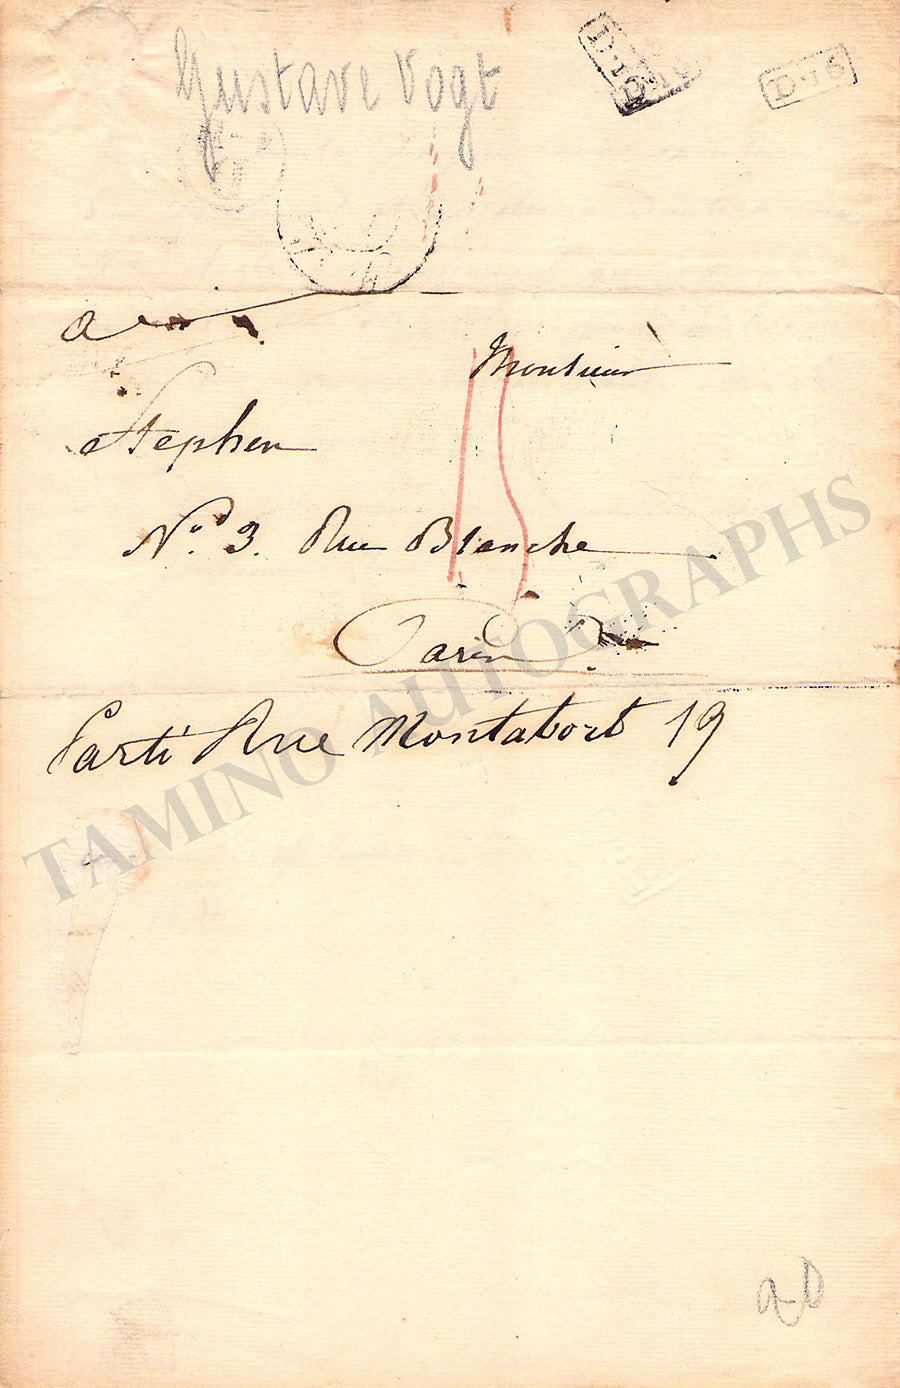 Gustave Vogt
D.16
D.16
D.16
a
Monsieur
Stephen
N.° 3. Rue Blanche
Paris
Parti Rue Montabort 19
TAMINO AUTOGRAPHS